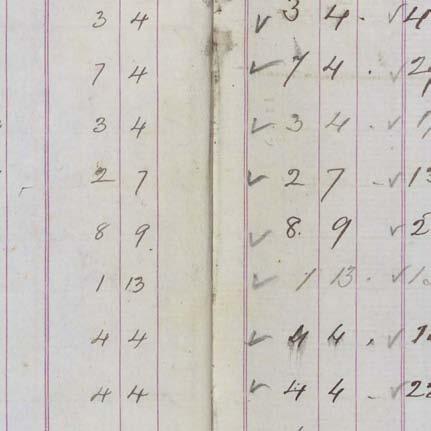 3 4 ✓ 3 4 . ✓ 4
7 4 ✓ 7 4 . ✓ 2
3 4 ✓ 3 4 . ✓
2 7 ✓ 2 7 - ✓ 13
8 9 ✓ 8 9 ✓ 2
1 13 ✓ 1 13 . ✓ 1
4 4 ✓ 4 4 . ✓
4 4 ✓ 4 4 - ✓ 22